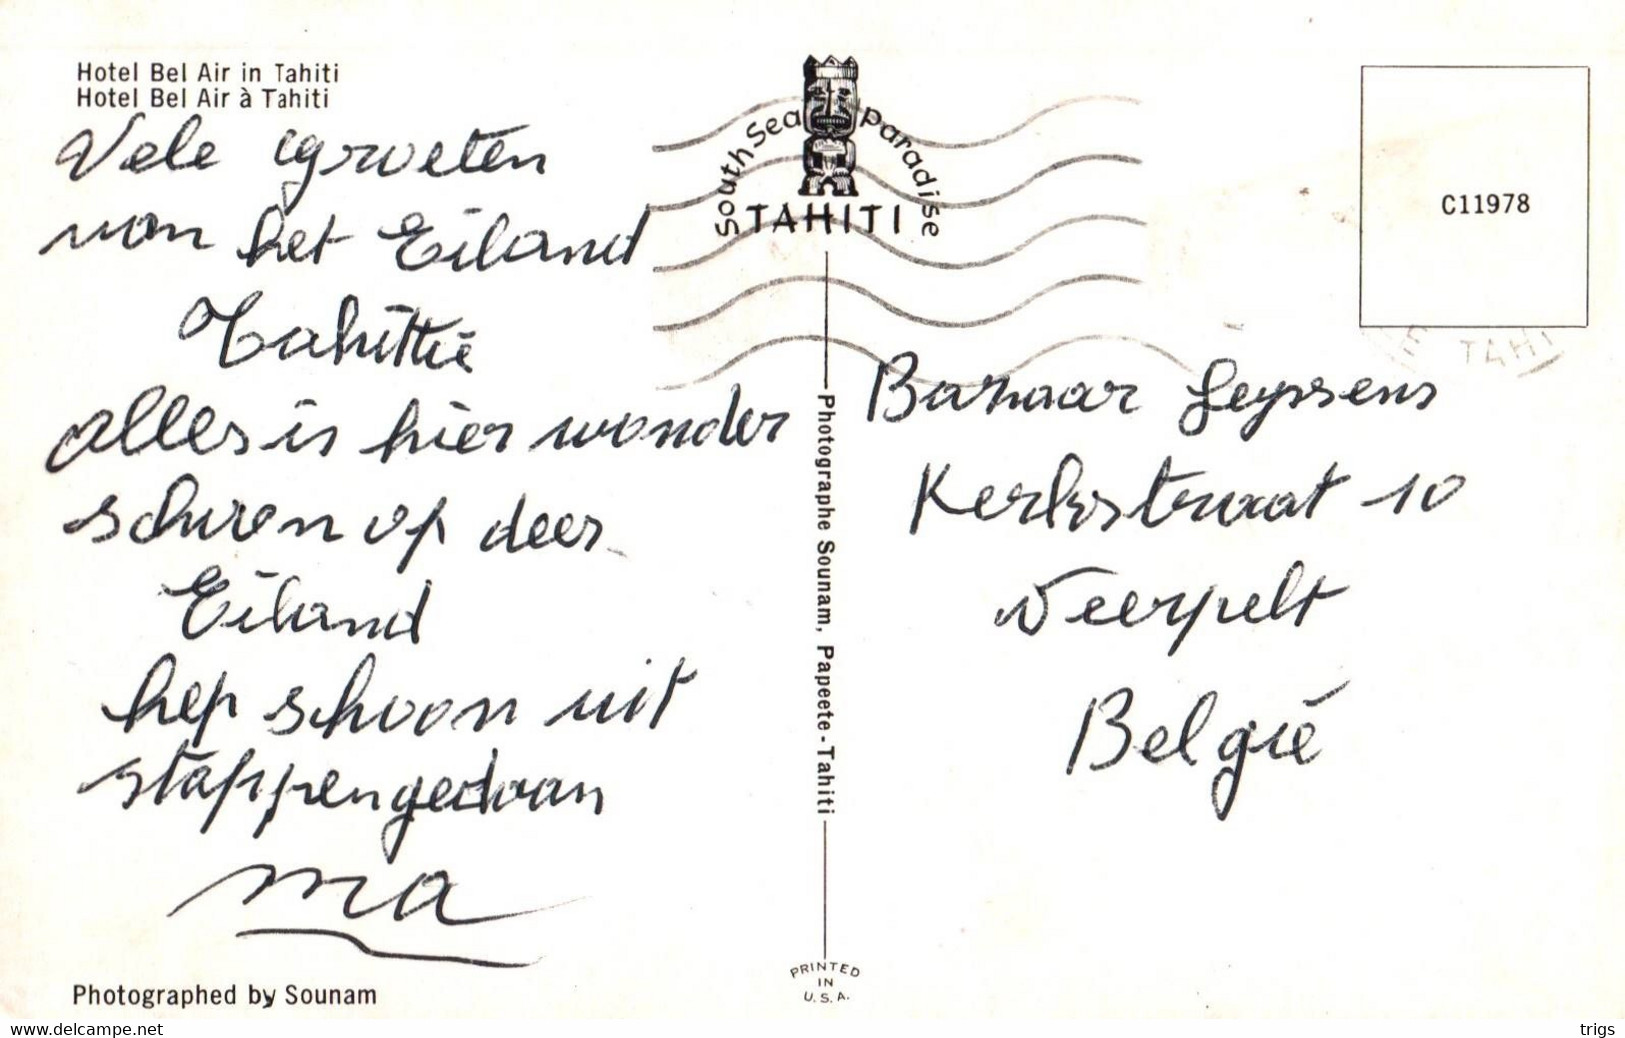 Hotel Bel Air in Tahiti
Hotel Bel Air à Tahiti
Vele groeten
van het Eiland
Tahittië
alles is hier wonder
schoon op dees
Eiland
hep schoon uit
stappengedaan
ma
Photographed by Sounam
South Sea Paradise
TAHITI
Photographe Sounam, Papeete-Tahiti
PRINTED
IN
U.S.A.
C11978
TAHI
Bazaar Geyssens
Kerkstraat 10
Neerpelt
België
www.delcampe.net
trigs